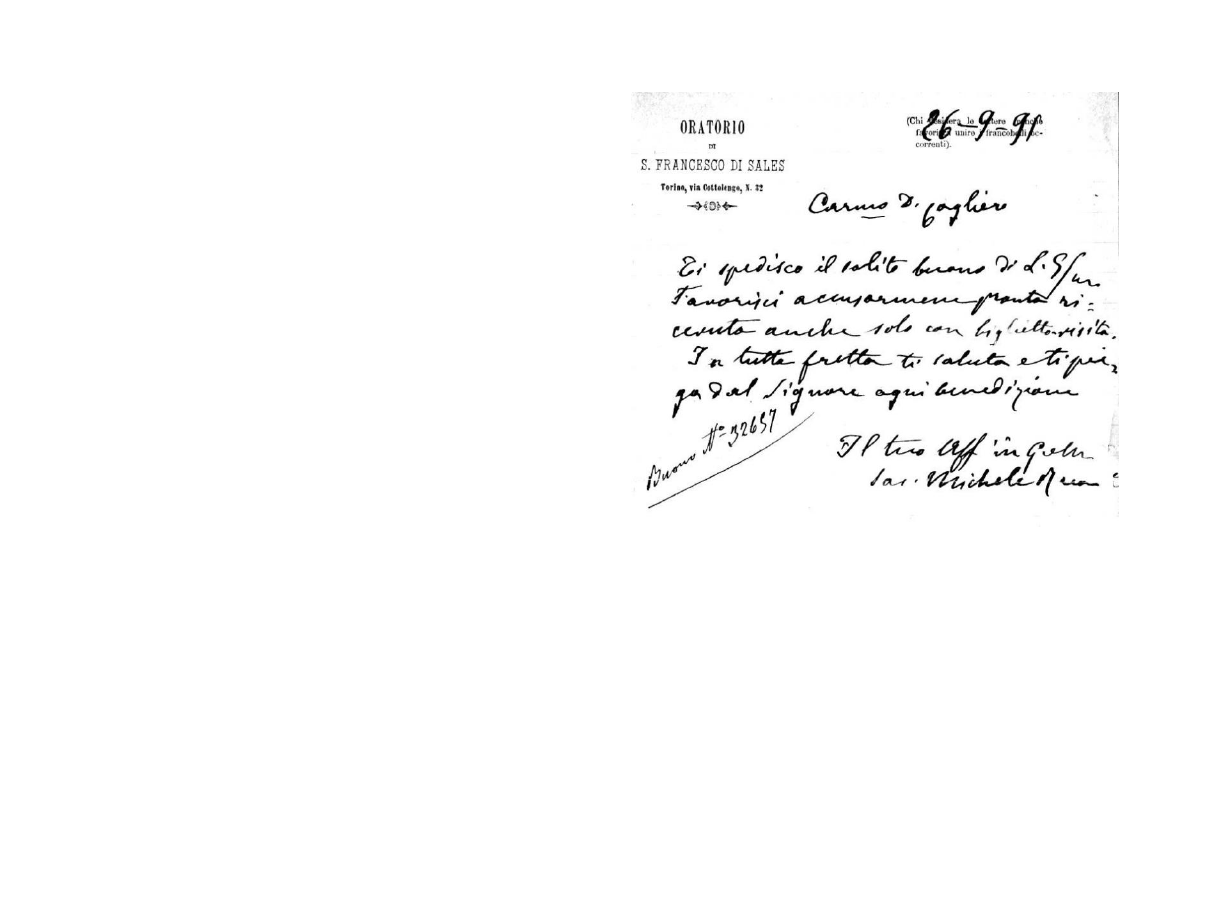 ORATORIO
DI
S. FRANCESCO DI SALES
Torino, via Cottolengo, N. 32
(Chi desidera le lettere
favorisca unire i francobolli oc-
correnti).
26-9-91
Carmo D. Cagliero
Ti spedisco il solito buono di L.
Favorisci accusarmene pronta ri=
cevuta anche solo con biglietto visita.
In tutta fretta ti saluta e ti pre,
ga dal Signore ogni benedizione
Buono No 32657
Il tuo Aff in G.
Sac. Michele Rua